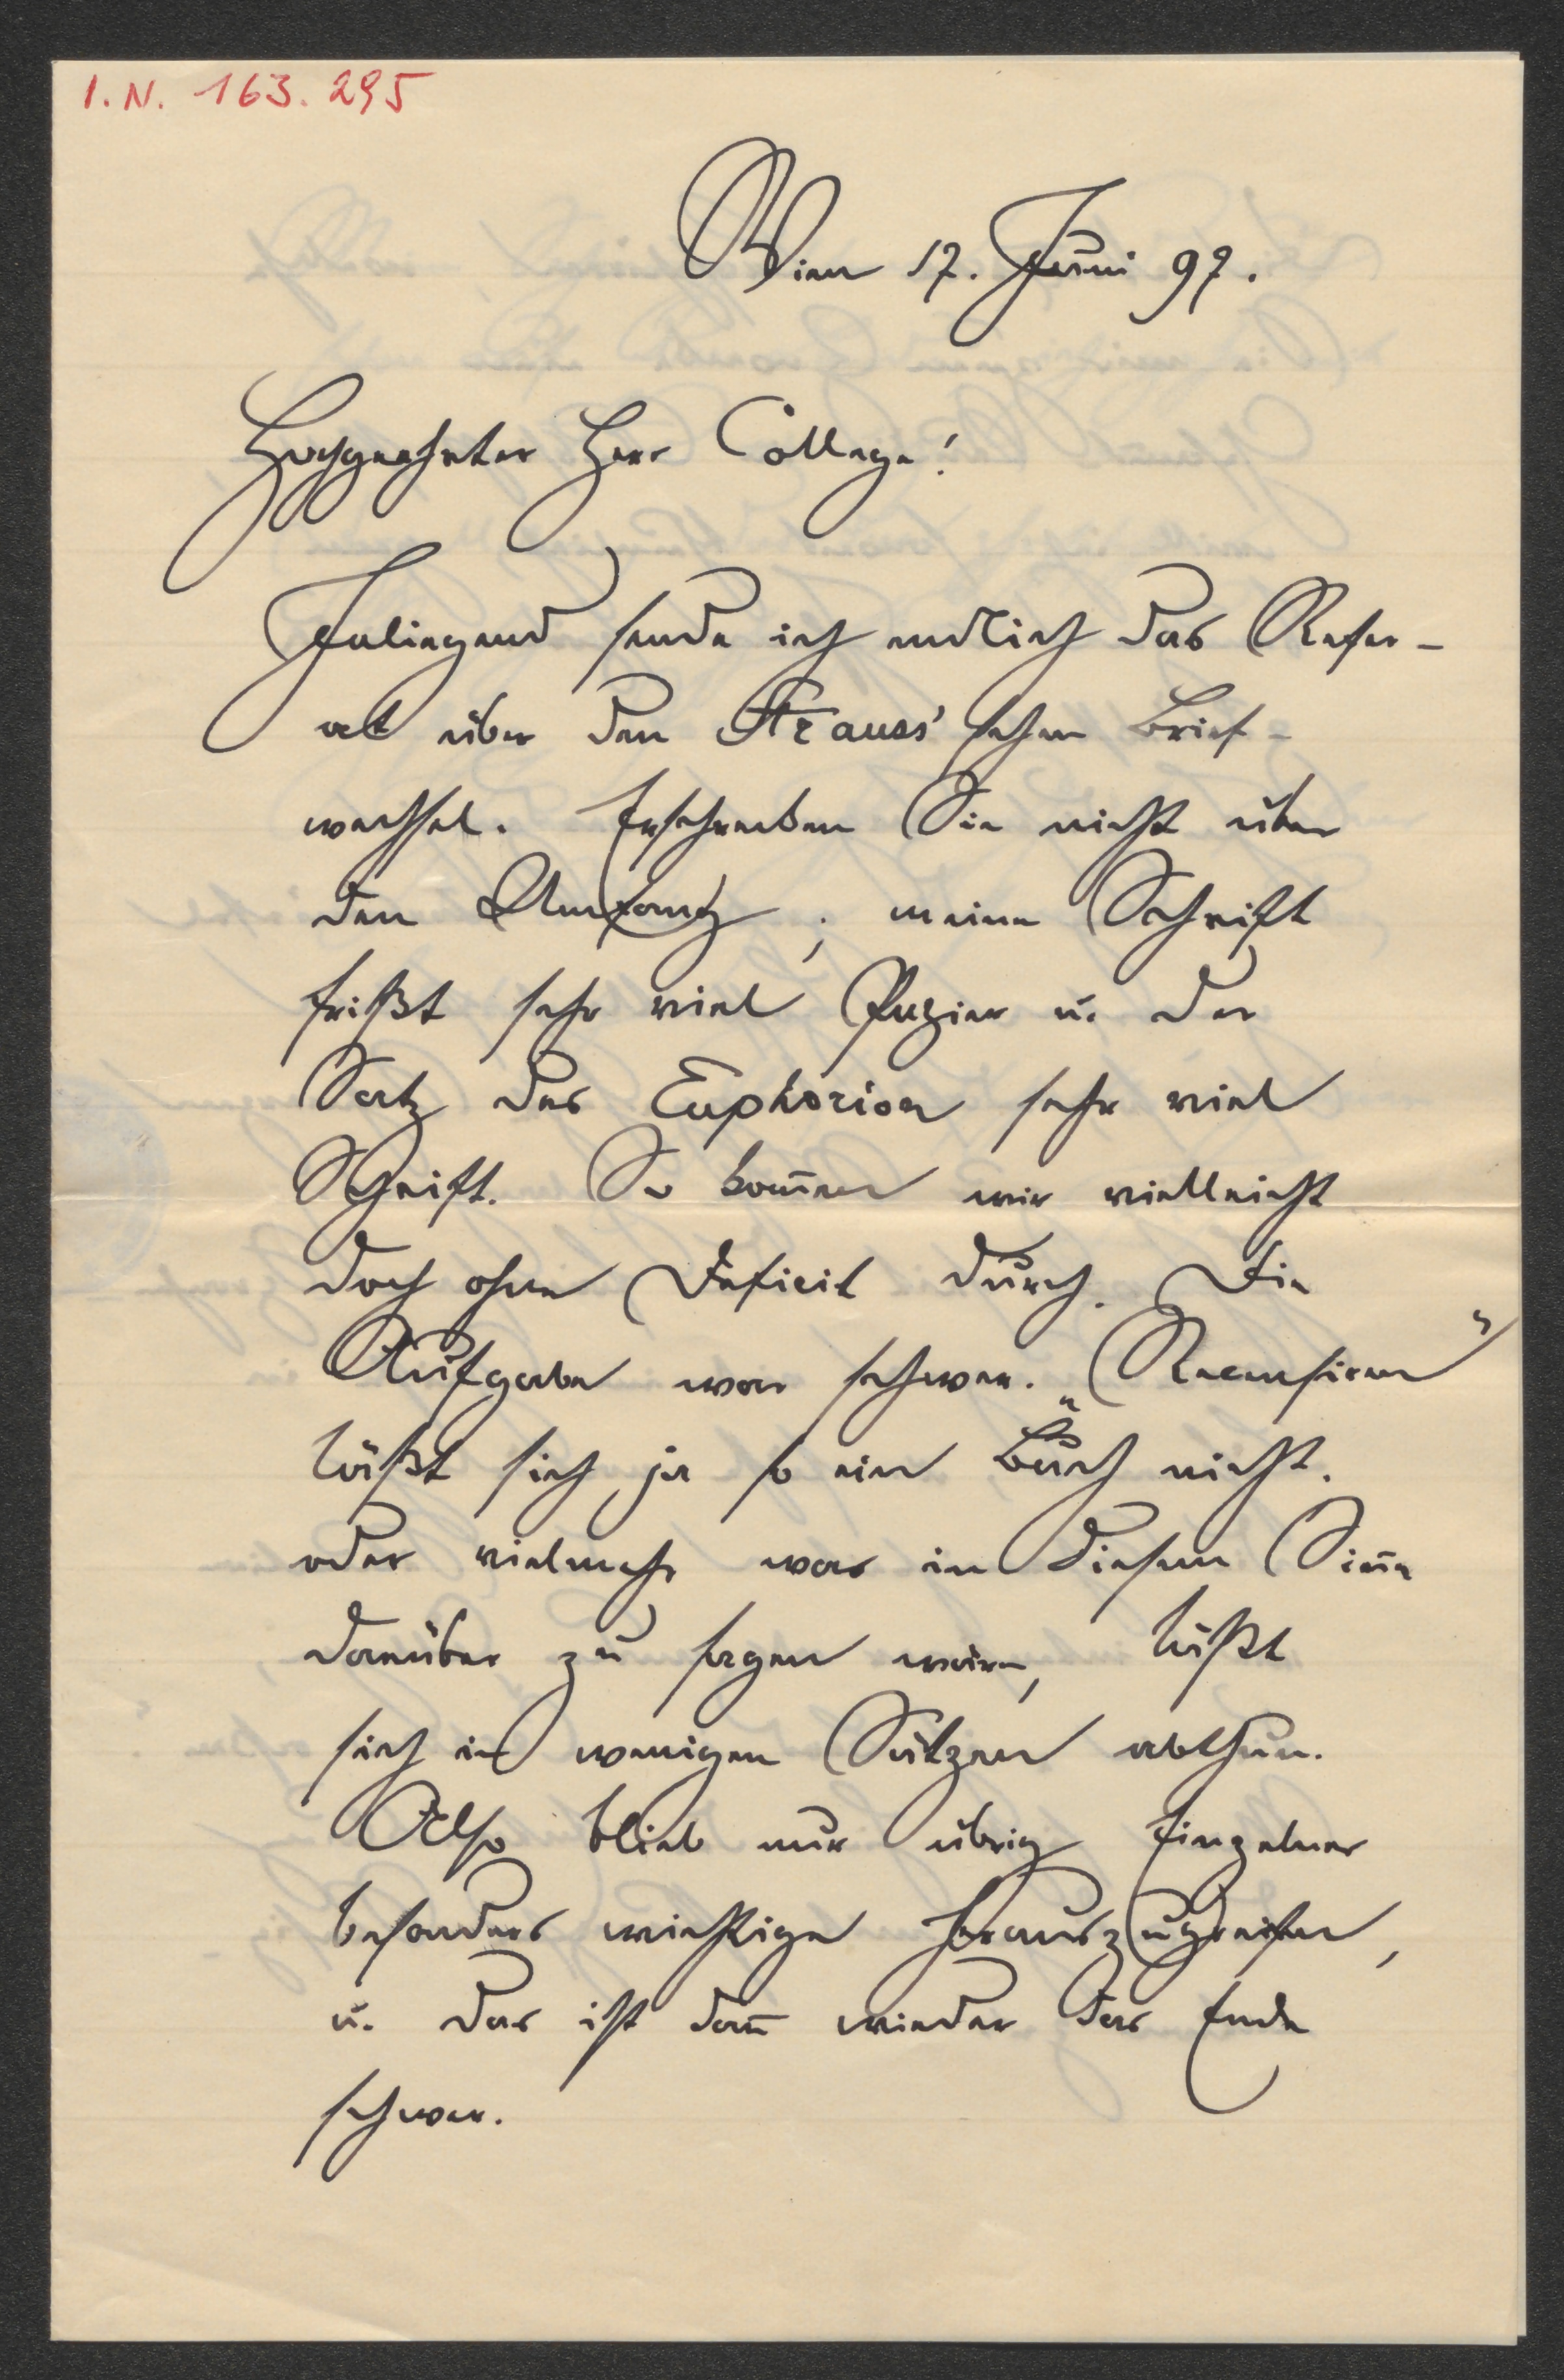 I. N. 163.295
Wien 17. Juni 97.
Hochgeehrter Herr College!
Inliegend sende ich endlich das Refer-
at über den Strauss'schen Brief-
wechsel. Erschrecken Sie nicht über
den Umfang; meine Schrift
frißt sehr viel Papier u. der
Satz des Euphorion sehr viel
Schrift. So kom̅en wir vielleicht
doch ohne Deficit durch. Die
Aufgabe war schwer. „Recensiren“
läßt sich ja so ein Buch nicht.
oder vielmehr was in diesem Sin̅e
darüber zu sagen wäre, läßt
sich in wenigen Sätzen abthun.
Also blieb nur übrig Einzelnes
besonders wichtige herauszugreifen,
u. das ist dan̅ wieder das Ende
schwer.